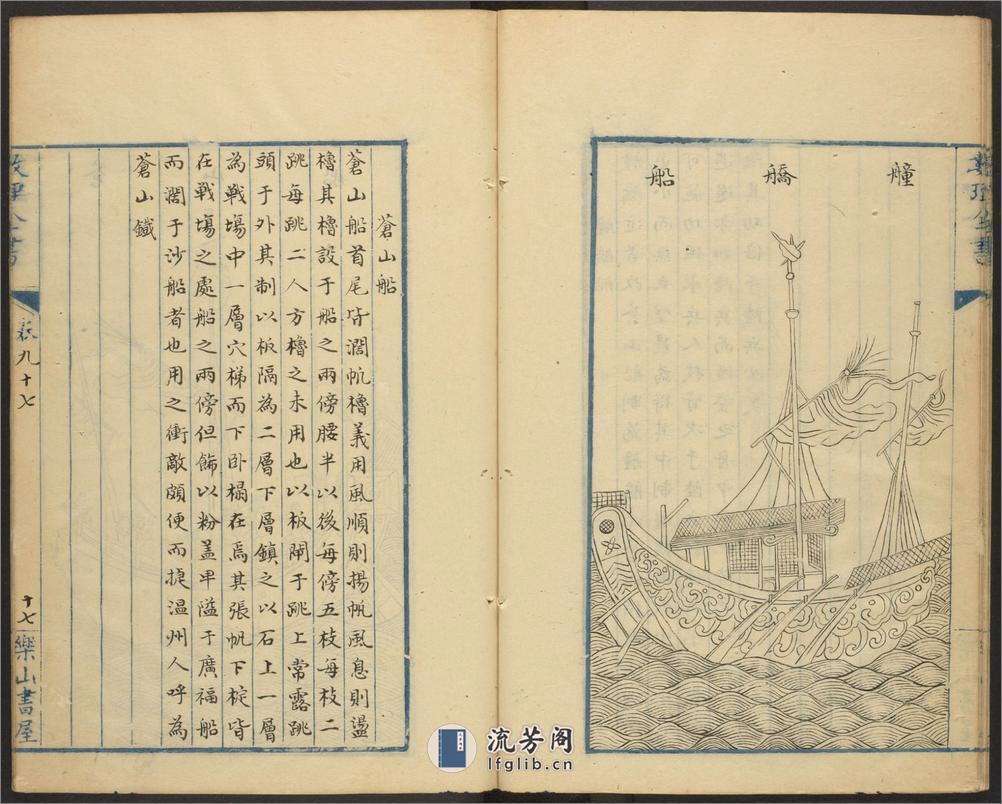 艟
船
蒼山船
蒼山船首尾皆濶帆櫓義用風順則揚帆風息則盪
櫓其櫓設于船之兩傍腰半以後每傍五枝每枝二
跳每跳二人方櫓之未用也以板閘于跳上常露跳
頭于外其制以板隔為二層下層鎮之以石上一層
為戰塲中一層穴梯而下卧榻在焉其張帆下椗皆
在戰塲之處船之兩傍但飾以粉盖甲隘于廣福船
而濶于沙船者也用之衝敵頗便而捷温州人呼為
蒼山鐵
卷九十七
十七
樂山書屋
流芳阁
lfglib.cn